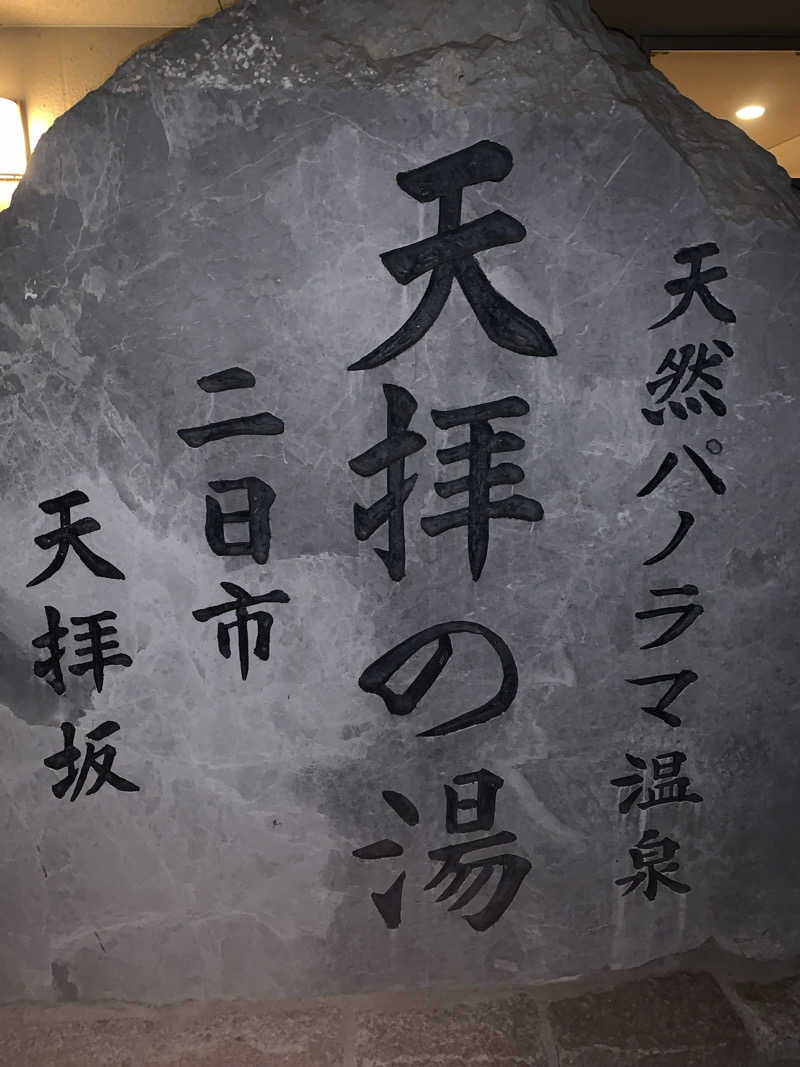 天然パノラマ温泉
天拝の湯
二日市
天拝坂